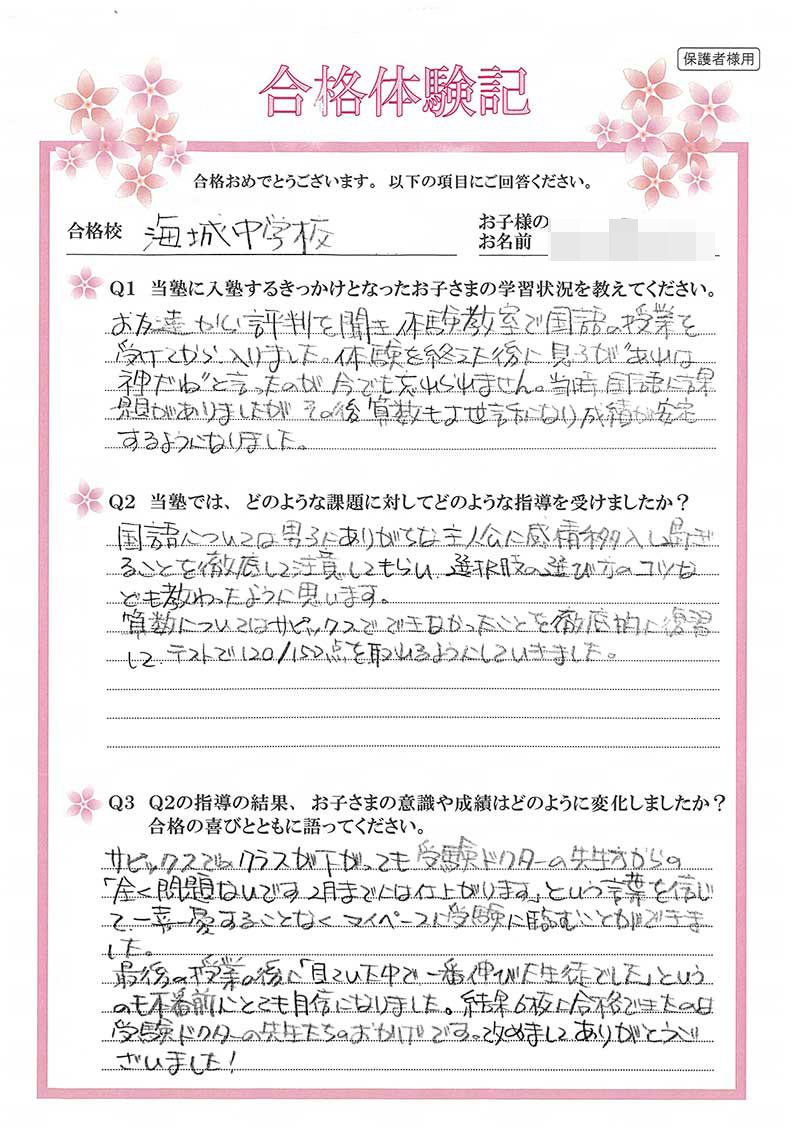 保護者様用
合格体験記
合格おめでとうございます。以下の項目にご回答ください。
合格校 海城中学校
お子様の
お名前
Q1 当塾に入塾するきっかけとなったお子さまの学習状況を教えてください。
お友達から評判を聞き体験教室で国語の授業を
受けてから入りました。体験を終えた後に息子が"あれは
神だね"と言ったのが今でも忘れられません。当時国語に課
題がありましたがその後算数もお世話になり成績が安定
するようになりました。
Q2 当塾では、どのような課題に対してどのような指導を受けましたか？
国語については男子にありがちな主人公に感情移入し過ぎ
ることを徹底して注意してもらい選択肢の選び方のコツな
ども教わったように思います。
算数についてはサピックスでできなかったことを徹底的に復習
して、テストで120/150点を取れるようにしていきました。
Q3 Q2の指導の結果、お子さまの意識や成績はどのように変化しましたか？
合格の喜びとともに語ってください。
サピックスでのクラスが下がっても受験ドクターの先生方からの
「全く問題ないです2月までには仕上がります」という言葉を信じ
て一喜一憂することなくマイペースに受験に臨むことができま
した。
最後の授業の後に「見ていた中で一番伸びた生徒でした」という
のも本番前にとても自信になりました。結果6校に合格できたのは
受験ドクターの先生たちのおかげです。改めましてありがとうご
ざいました！